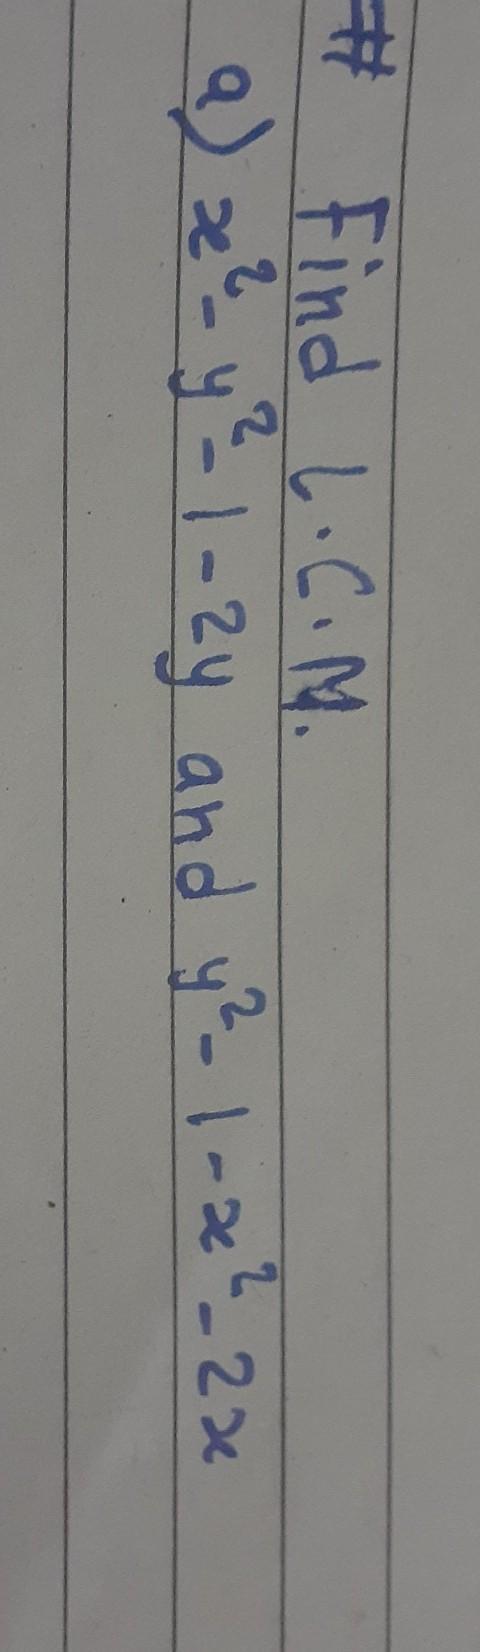 # Find L.C.M.
a) x² - y² - 1 - 2y and y² - 1 - x² - 2x